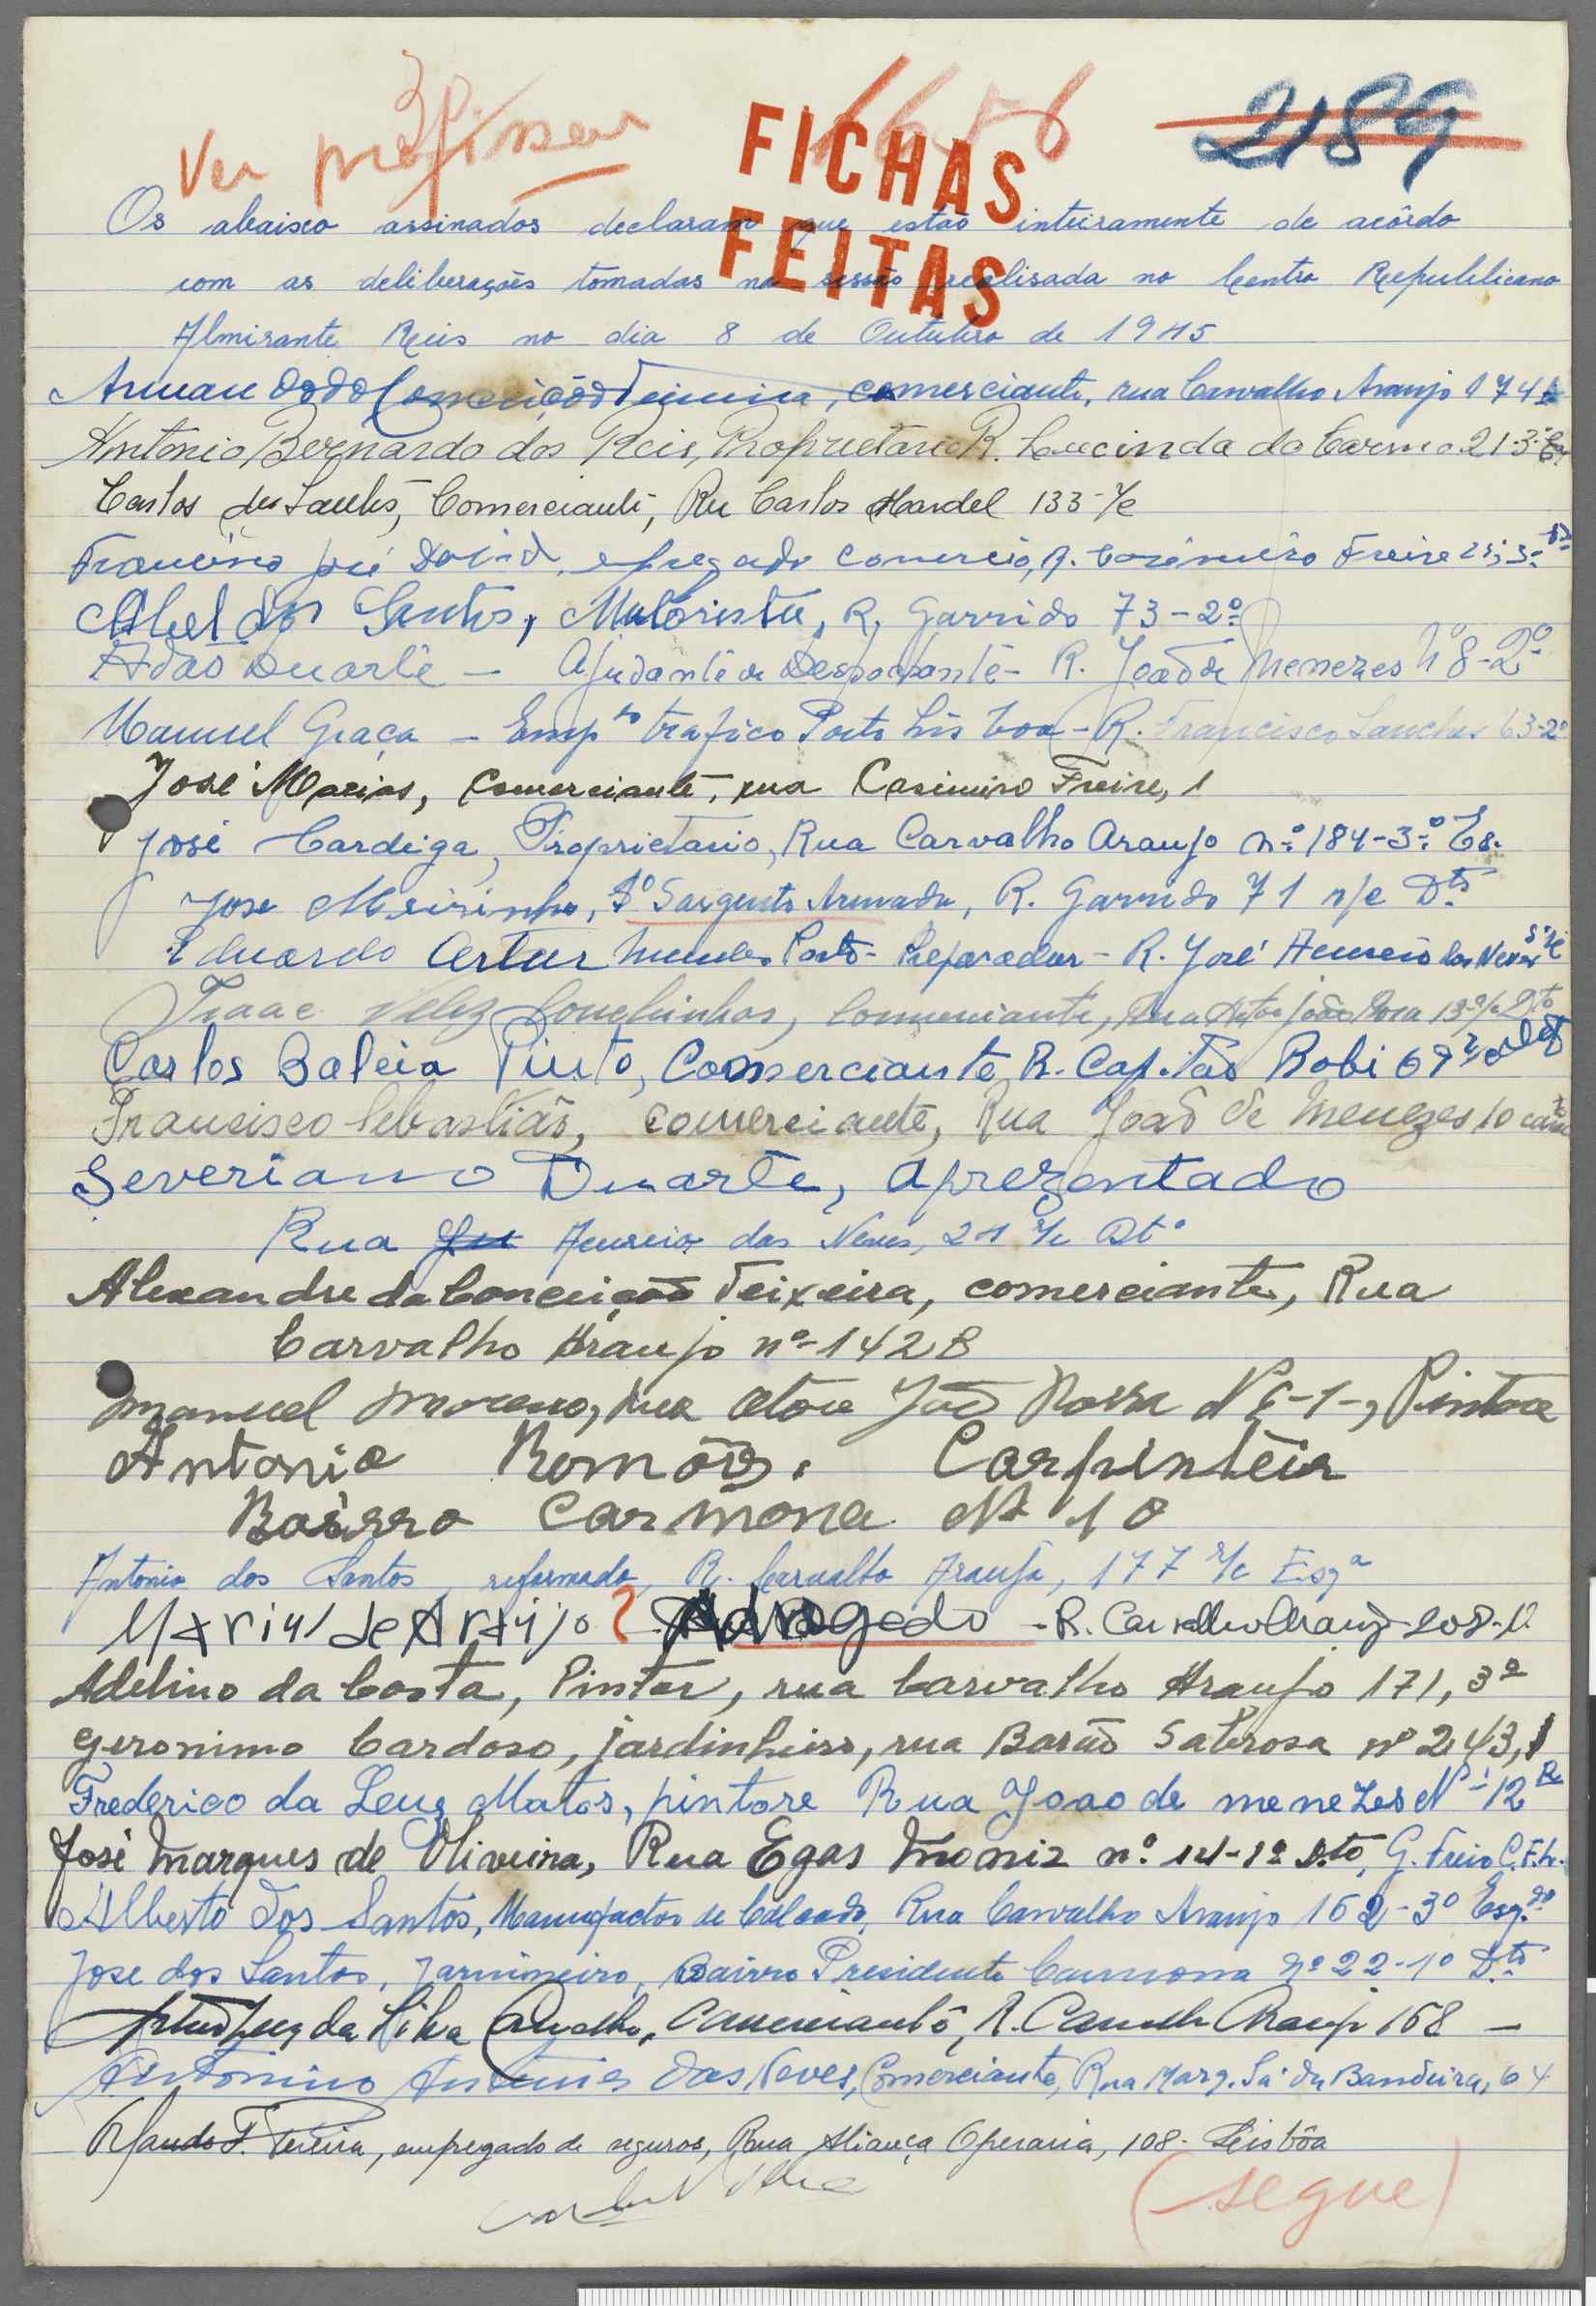 Ver professor
6656
2189
FICHAS
FEITAS
Os abaixo assinados declaram que estão inteiramente de acôrdo
com as deliberações tomadas na sessão realisada no Centro Republicano
Almirante Reis no dia 8 de Outubro de 1945
Armando da Conceição Teixeira, comerciante, rua Carvalho Araujo 174
Antonio Bernardo dos Reis, Proprietario R. Lucinda do Carmo 21-3º
Carlos dos Santos, Comerciante, Rua Carlos Mardel 133 r/c
Francisco José David, epregado comercio, R. Casimiro Freire
Abel dos Santos, Motorista, R. Garrido 73-2º
Adão Duarte - Ajudante de Despachante - R. João de Menezes Nº 8-2º
Manuel Graça - Empdo trafico Porto Lisboa - R. Francisco Sanches 63-2º
José Macias, Comerciante, rua Casimiro Freire, 1
José Cardiga, Proprietario, Rua Carvalho Araujo nº 184-3º Es.
Jose Meirinho, Sargento Armada, R. Garrido 71 r/c Dto
Eduardo Artur Mendes Porto - Preparador - R. José Acurcio das Neves
Isaac Velez Conchinhas, Comerciante, Rua Actor João Rosa 13 r/c Dto
Carlos Baleia Pinto, Comerciante, R. Capitão Robi 69
Francisco Sebastião, comerciante, Rua João de Menezes 10
Severiano Duarte, Aprezentado
Rua Acurcio das Neves, 21 r/c Dtº
Alexandre da Conceição Teixeira, comerciante, Rua
Carvalho Araujo nº 142 B
Manuel Moreno, Rua Ator João Rossa Nº 6-1-, Pintore
Antonio Romão. Carpinteiro
Bairro Carmona Nº 10
Antonio dos Santos, reformado, R. Carvalho Araujo, 177 r/c Esqª
de Araujo ? - R. Carvalho Araujo - 208-1º
Adelino da Costa, Pintor, rua Carvalho Araujo 171, 3º
Geronimo Cardoso, jardinheiro, rua Barão Saberosa nº 243,
Frederico da Matos, pintore Rua Joao de menezes Nº 12
José Marques de Oliveira, Rua Egas Moniz nº 14-1º Dto, G. Freio C.F.L.
Alberto dos Santos, Manufactor de Calçado, Rua Carvalho Araujo 162-3º Esqdo
Jose dos Santos, Bairro Presidente Carmona nº 22-1º Dto
da Silva Carvalho, comerciante, R. Carvalho Araujo 168 -
Antonino Antunes das Neves, Comerciante, Rua Marq. Sá da Bandeira, 64
F. Pereira, empregado de seguros, Rua Aliança Operaria, 108 - Lisbôa
(segue)